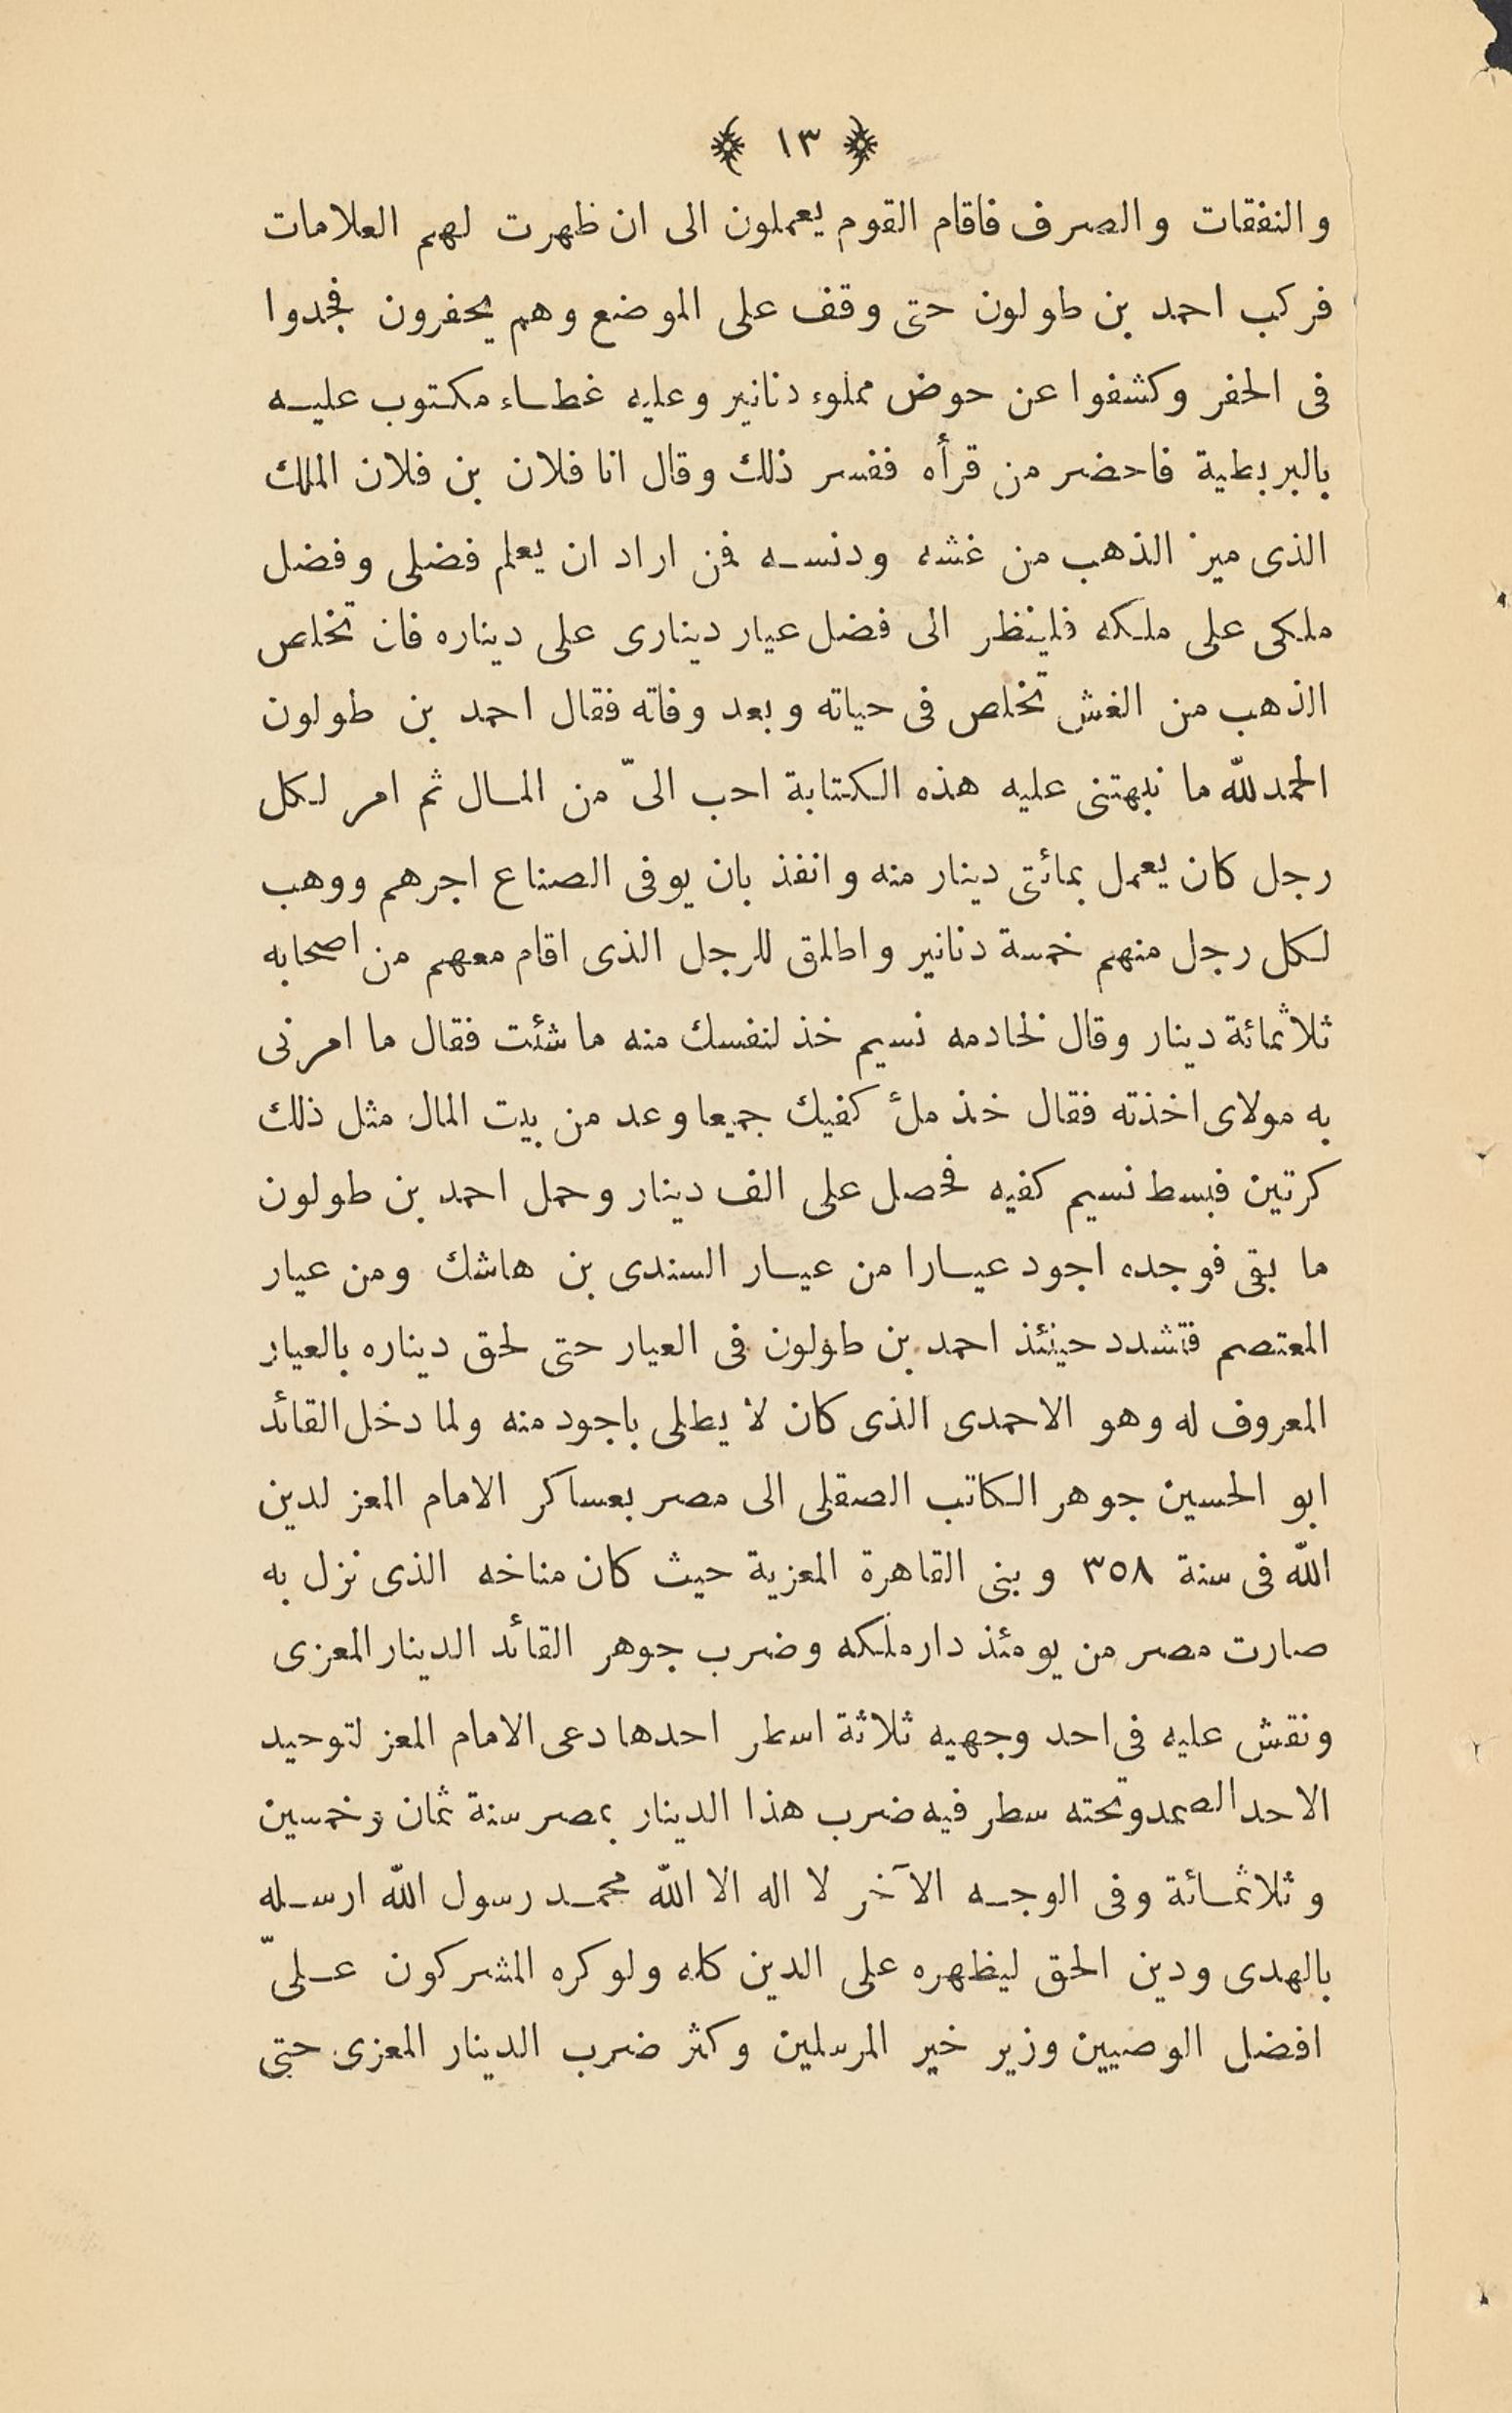 ﴿ ١٣ ﴾
والنفقات والصرف فاقام القوم يعملون الى ان ظهرت لهم العلامات
فركب احمد بن طولون حتى وقف على الموضع وهم يحفرون فجدوا
فى الحفر وكشفوا عن حوض مملوء دنانير وعليه غطاء مكتوب عليه
بالبربطية فاحضر من قرأه ففسر ذلك وقال انا فلان بن فلان الملك
الذى ميز الذهب من غشه ودنسه فمن اراد ان يعلم فضلى وفضل
ملكى على ملكه فلينظر الى فضل عيار دينارى على ديناره فان تخلص
الذهب من الغش تخلص فى حياته وبعد وفاته فقال احمد بن طولون
الحمد لله ما نبهتنى عليه هذه الكتابة احب الىّ من المال ثم امر لكل
رجل كان يعمل بمائتى دينار منه وانفذ بان يوفى الصناع اجرهم ووهب
لكل رجل منهم خمسة دنانير واطلق للرجل الذى اقام معهم من اصحابه
ثلاثمائة دينار وقال لخادمه نسيم خذ لنفسك منه ما شئت فقال ما امرنى
به مولاى اخذته فقال خذ ملأ كفيك جميعا وعد من بيت المال مثل ذلك
كرتين فبسط نسيم كفيه فحصل على الف دينار وحمل احمد بن طولون
ما بقى فوجده اجود عيارا من عيار السندى بن هاشك ومن عيار
المعتصم فتشدد حينئذ احمد بن طولون فى العيار حتى لحق ديناره بالعيار
المعروف له وهو الاحمدى الذى كان لا يطلى باجود منه ولما دخل القائد
ابو الحسين جوهر الكاتب الصقلى الى مصر بعساكر الامام المعز لدين
الله فى سنة ٣٥٨ وبنى القاهرة المعزية حيث كان مناخه الذى نزل به
صارت مصر من يومئذ دار ملكه وضرب جوهر القائد الدينار المعزى
ونقش عليه فى احد وجهيه ثلاثة اسطر احدها دعى الامام المعز لتوحيد
الاحد الصمد وتحته سطر فيه ضرب هذا الدينار بمصر سنة ثمان وخمسين
وثلاثمائة وفى الوجه الآخر لا اله الا الله محمد رسول الله ارسله
بالهدى ودين الحق ليظهره على الدين كله ولو كره المشركون علىّ
افضل الوصيين وزير خير المرسلين وكثر ضرب الدينار المعزى حتى